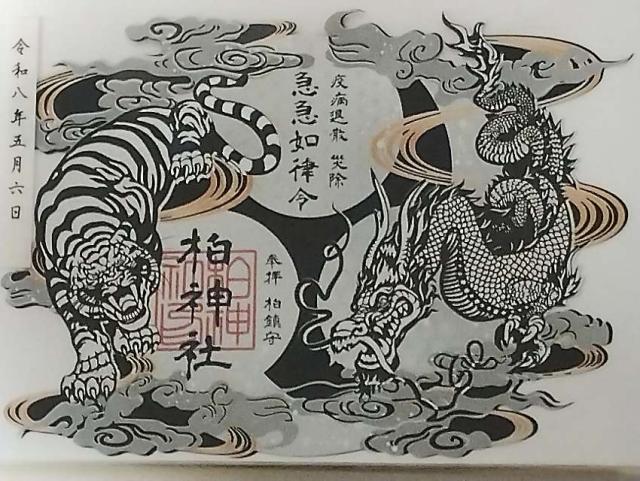 疫病退散 災除
急急如律令
参拝 柏鎮守
柏神社
令和八年五月六日